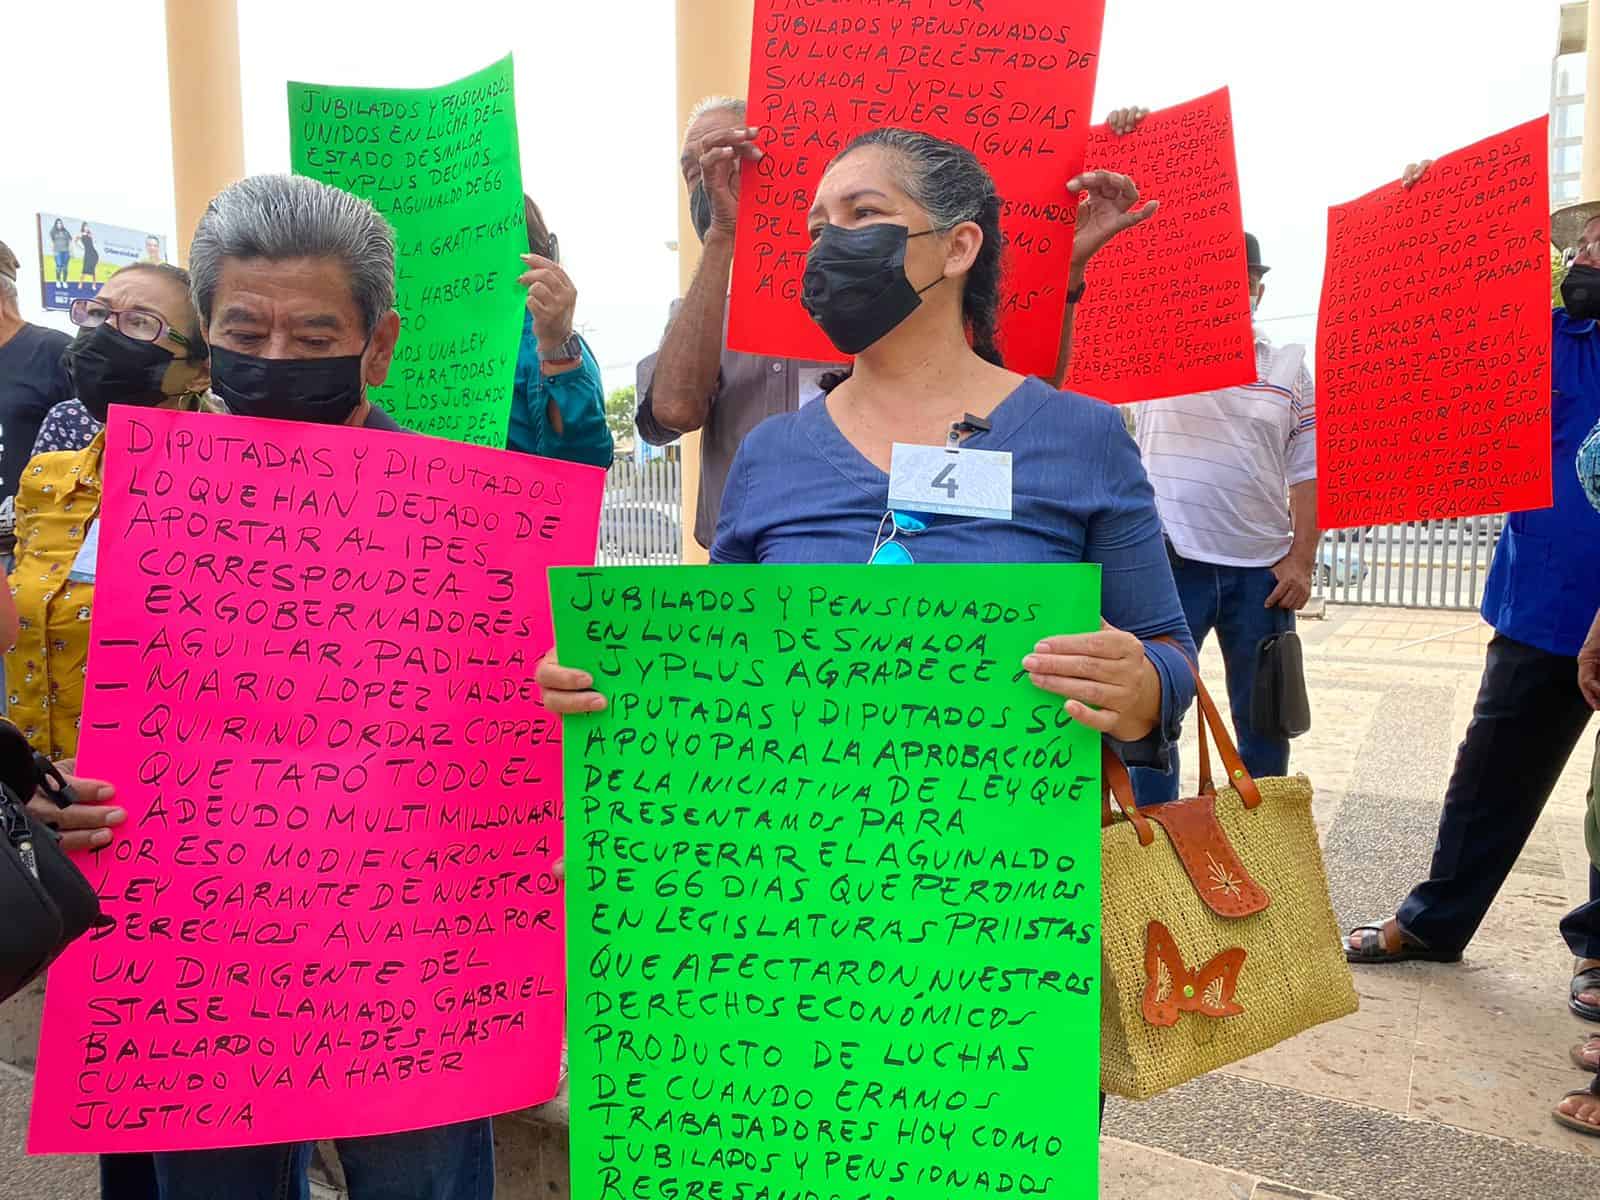 JUBILADOS Y PENSIONADOS
UNIDOS EN LUCHA DEL
ESTADO DE SINALOA
JYPLUS DECIMOS
AGUINALDO DE 66
LA GRATIFICACIÓN
AL HABER DE
UNA LEY
PARA TODAS Y
LOS JUBILADO
DEL
ESTADO
PRESENTADA POR
JUBILADOS Y PENSIONADOS
EN LUCHA DEL ESTADO DE
SINALOA JYPLUS
PARA TENER 66 DIAS
DE IGUAL
QUE
JUB
DEL
PAT
A LA PRESENTE
DE ESTE
INICIATIVA
PARA PODER
DE LOS
ECONÓMICOS
FUERON QUITADOS
LEGISLATURAS
APROBANDO
EN CONTA DE LOS
DERECHOS YA ESTABLECI
EN LA LEY DE
TRABAJORES AL SERVICIO
DEL ESTADO ANTERIOR
DIPUTADOS
DECISIONES ESTA
EL DESTINO DE JUBILADOS
Y PENSIONADOS EN LUCHA
DE SINALOA POR EL
DAÑO OCASIONADO POR
LEGISLATURAS PASADAS
QUE APROBARON
REFORMAS A LA LEY
DE TRABAJADORES AL
SERVICIO DEL ESTADO SIN
ANALIZAR EL DAÑO QUE
OCASIONARON POR ESO
PEDIMOS QUE NOS APOYEN
CON LA INICIATIVA DEL
LEY CON EL DEBIDO
DICTAMEN DE APROVACION
MUCHAS GRACIAS
DIPUTADAS Y DIPUTADOS
LO QUE HAN DEJADO DE
APORTAR AL IPES
CORRESPONDE A 3
EXGOBERNADORES
- AGUILAR, PADILLA
- MARIO LOPEZ VALDES
- QUIRINO ORDAZ COPPEL
QUE TAPÓ TODO EL
ADEUDO MULTIMILLONARI
POR ESO MODIFICARON LA
LEY GARANTE DE NUESTROS
DERECHOS AVALADA POR
UN DIRIGENTE DEL
STASE LLAMADO GABRIEL
BALLARDO VALDÉS HASTA
CUANDO VA A HABER
JUSTICIA
4
JUBILADOS Y PENSIONADOS
EN LUCHA DE SINALOA
JYPLUS AGRADECE A
DIPUTADAS Y DIPUTADOS SU
APOYO PARA LA APROBACIÓN
DE LA INICIATIVA DE LEY QUE
PRESENTAMOS PARA
RECUPERAR EL AGUINALDO
DE 66 DIAS QUE PERDIMOS
EN LEGISLATURAS PRIISTAS
QUE AFECTARON NUESTROS
DERECHOS ECONÓMICOS
PRODUCTO DE LUCHAS
DE CUANDO ERAMOS
TRABAJADORES HOY COMO
JUBILADOS Y PENSIONADOS
REGRESAMOS